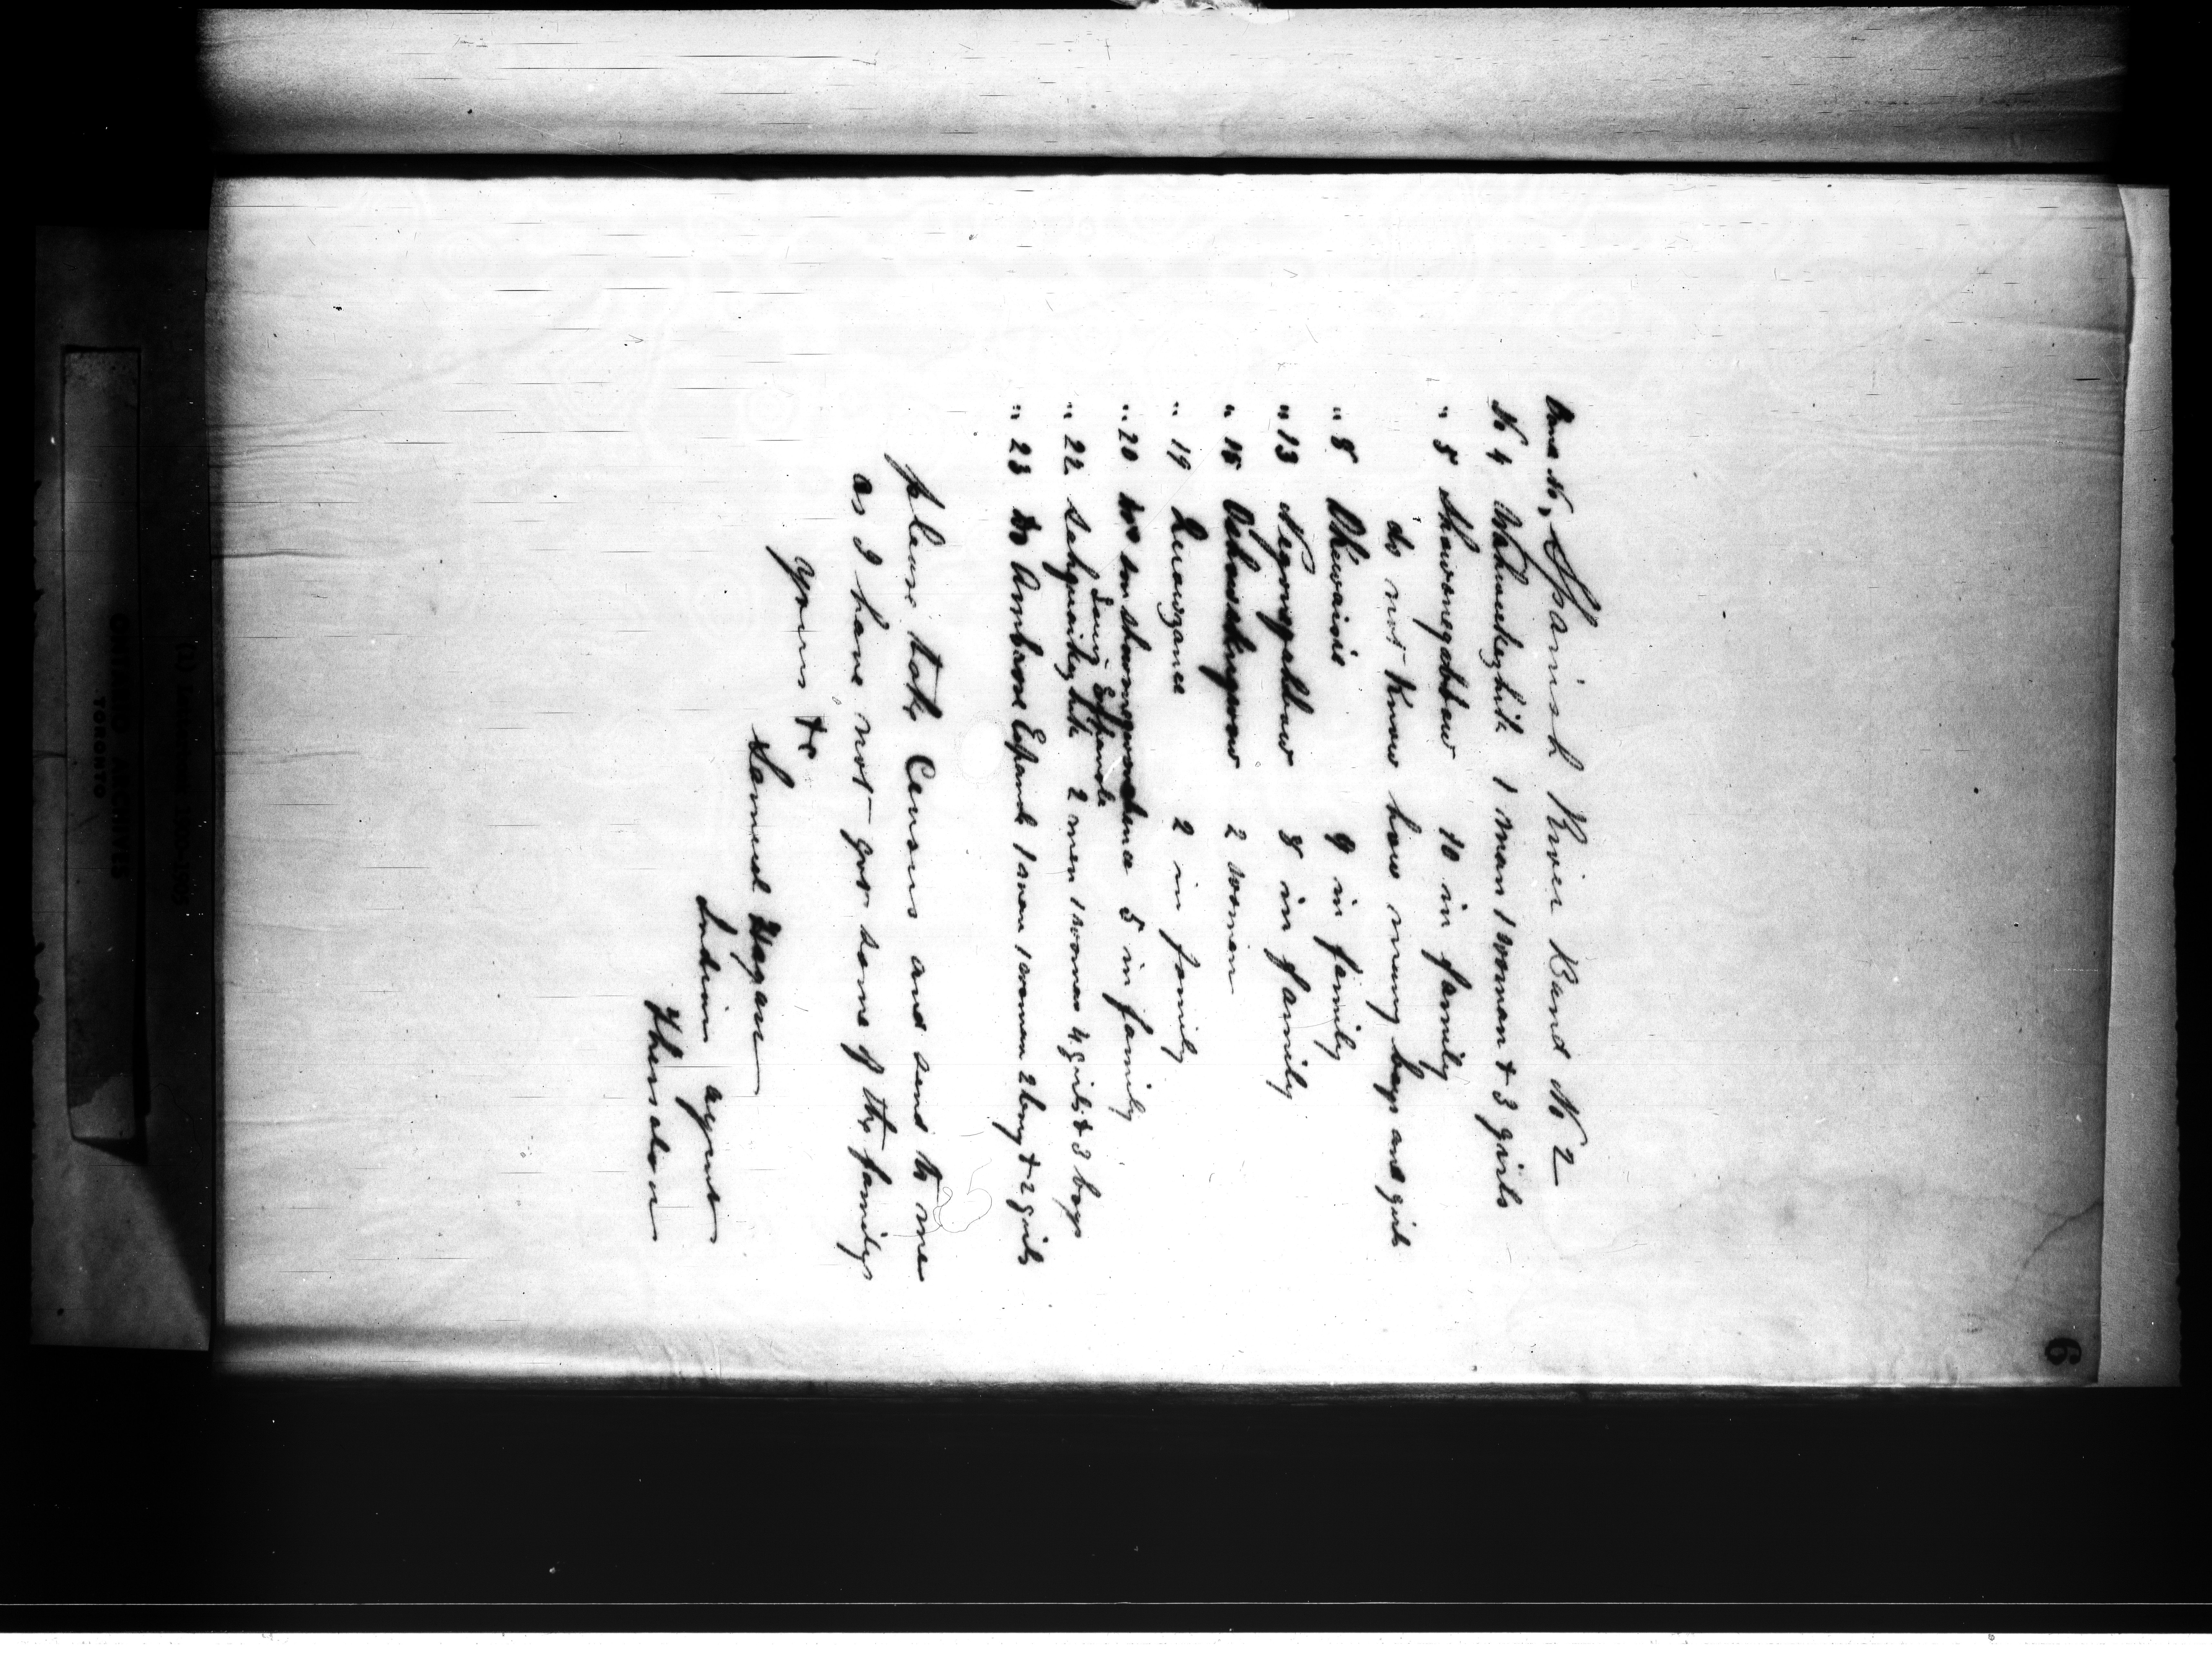 6
Band No, Spanish River Band No 2
No 4 1 man 1 woman & 3 girls
" 5 Shawonegabbow 10 in family
do not Know how many boys and girls
" 8 Okewaisie 9 in family
" 13 Negongabbow 8 in family
" 15 2 women
" 19 2 in family
" 20 5 in family
Louis Espanola
" 22 2 men 1 woman 4 girls & 3 boys
" 23 Ambrose 1 man 1 woman 2 boys & 2 girls
please take Census and send to me
as I have not got some of the familys
yours &c
Samuel Hagan
Indian agent
Thessalon
ONTARIO ARCHIVES
TORONTO